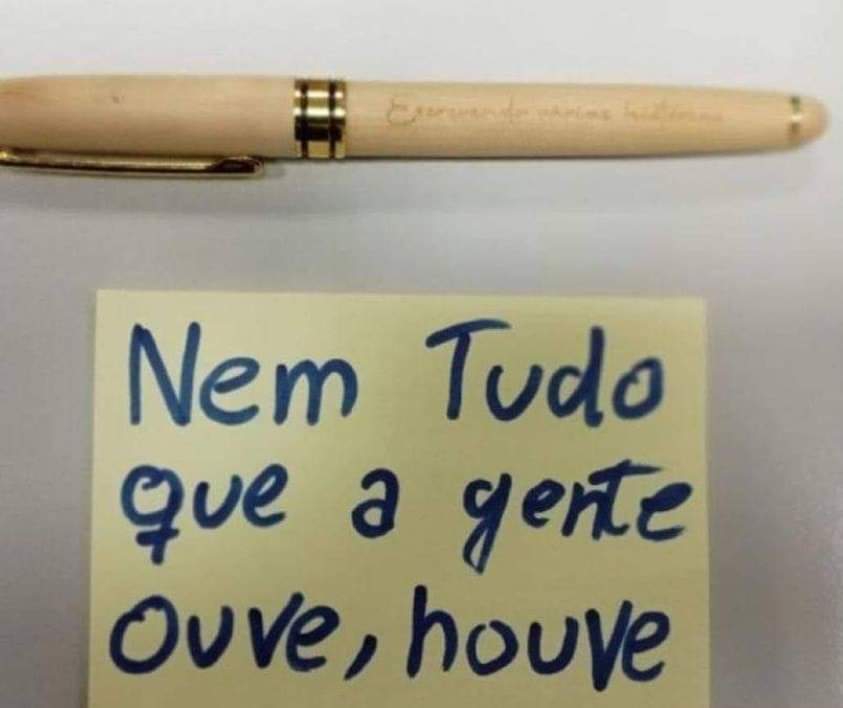 Escrevendo várias histórias
Nem Tudo
que a gente
Ouve, houve